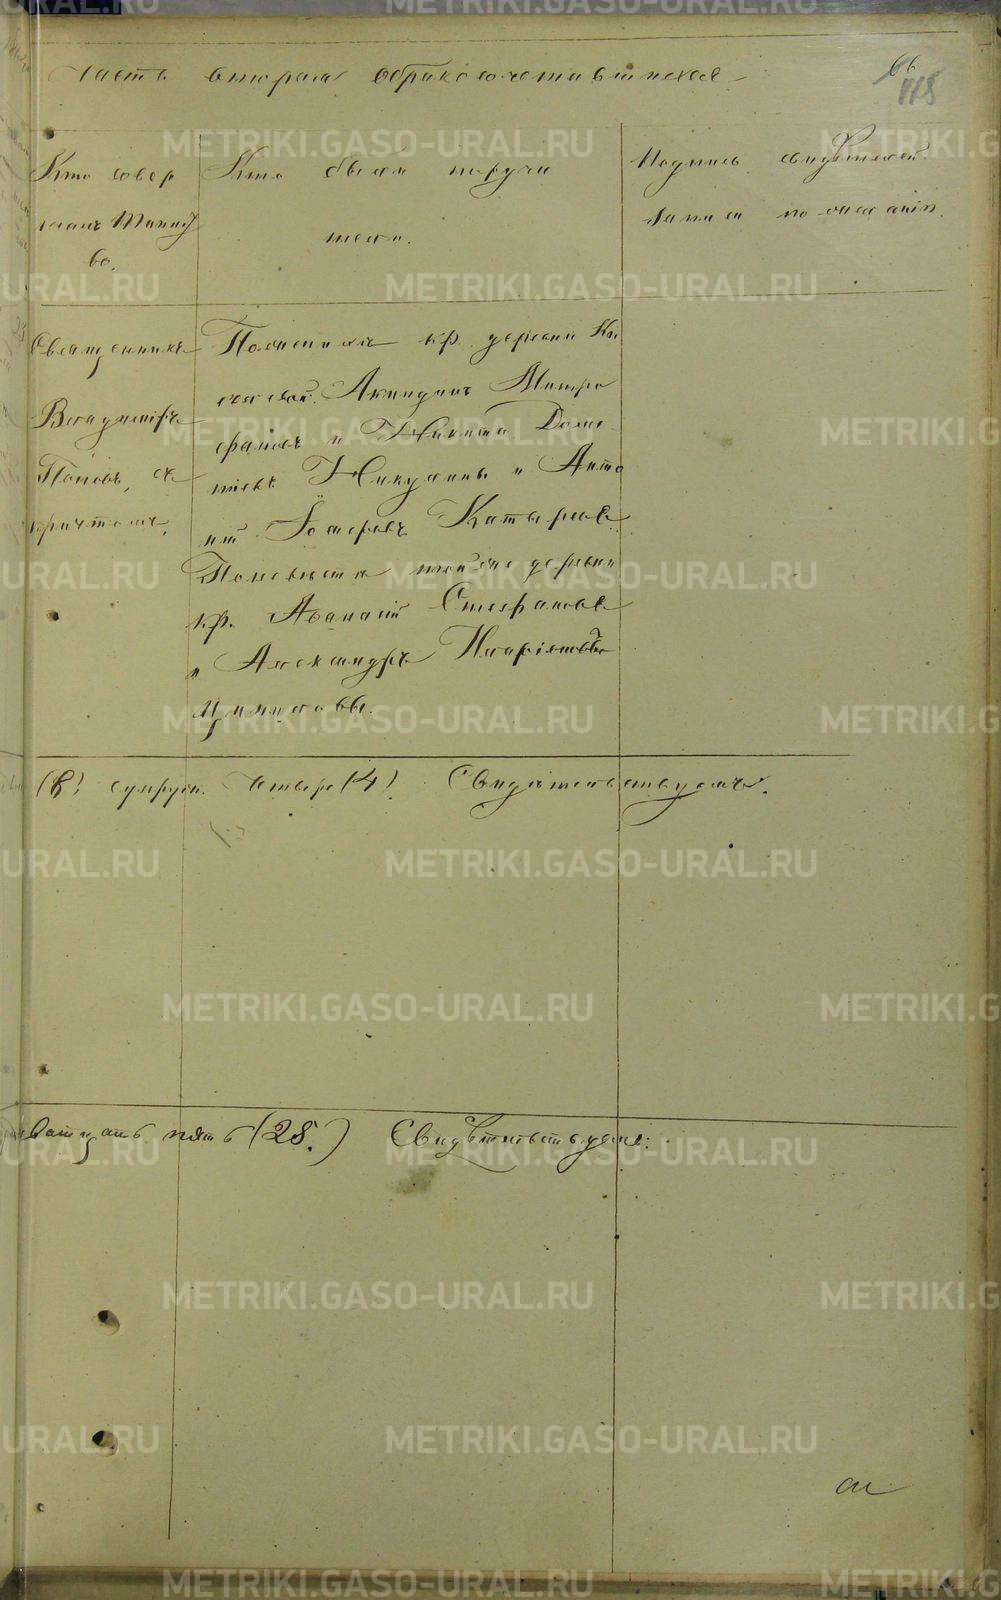 Часть вторая о бракосочетавшихся
66
118
Кто совер
шалъ Таинст
во.
Кто были поручи
тели.
Подпись свидѣтелей
записи по желанію.
Священникъ
Владиміръ
Поповъ, съ
причтомъ.
По женихѣ кр. деревни
Акиндинъ Митро
фановъ и Никита
Никулины и Анто
ній
По невѣстѣ той же деревни
кр. Аѳанасій Стефановъ
и Александръ Иларіоновъ
(8) супруж. четыре (4). Свидѣтельствуемъ.
двадцать пять (25.) Свидѣтельствуемъ:
METRIKI.GASO-URAL.RU